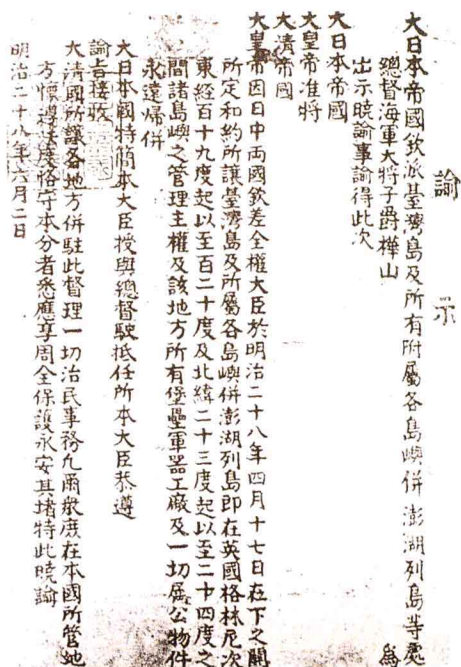 諭示
大日本帝國欽派臺灣島及所有附屬各島嶼併澎湖列島等處
總督海軍大將子爵樺山 為
出示曉諭事諭得此次
大日本帝國
大皇帝准將
大清帝國
大皇帝因日中兩國欽差全權大臣於明治二十八年四月十七日在下之關
所定和約所讓臺灣島及所屬各島嶼併澎湖列島即在英國格林尼次
東經百十九度起以至百二十度及北緯二十三度起以至二十四度之
間諸島嶼之管理主權及該地方所有堡壘軍器工廠及一切屬公物件
永遠歸併
大日本國特簡本大臣授與總督駛抵任所本大臣恭遵
諭旨接收
大清國所讓各地方併駐此督理一切治民事務凡爾眾庶在本國所管地
方懍遵法度恪守本分者悉應享周全保護永安其堵特此曉諭
明治二十八年六月二日